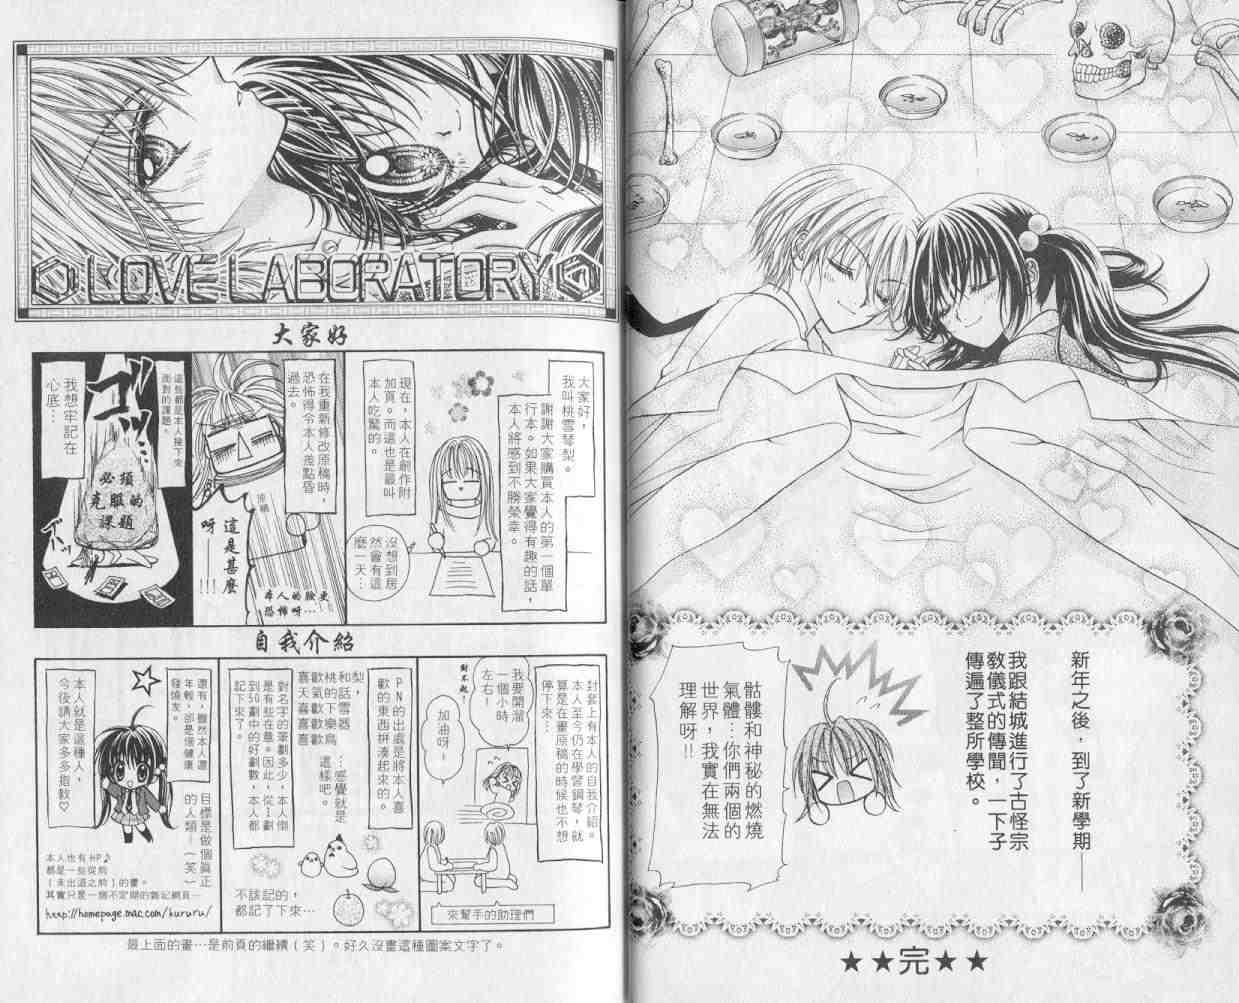 新年之後，到了新學期——
我跟結城進行了古怪宗
教儀式的傳聞，一下子
傳遍了整所學校。
骷髏和神秘的燃燒
氣體…你們兩個的
世界，我實在無法
理解呀!!
★★完★★
LOVE LABORATORY
大家好
大家好，
我叫桃雪琴梨。
謝謝大家購買本人的第一個單
行本。如果大家覺得有趣的話，
本人將感到不勝榮幸。
現在，本人在創作附
加頁。而這也是最叫
本人吃驚的。
沒想到居
然會有這
麼一天…
在我重新修改原稿時，
恐怖得令本人差點昏
過去。
這是甚麼
呀——!!!
本人的臉更
恐怖呀…
這些都是本人接下來
面對的課題。
我想牢記在
心底…
必須
克服的
課題
自我介紹
封套上有本人的自我介紹。
本人至今仍在學習鋼琴，就
算是在畫原稿的時候也不想
停下來…
我要開溜
一個小時
左右！
對不起！
加油呀！
來幫手的助理們
PN的出處是將本人喜
歡的東西拼湊起來的。
梨，
和話雪器
桃的下樂鳥
歡氣歡歡歡
喜天喜喜喜
…感覺就是
這樣吧。
對名字的筆劃多少，本人倒
是有些在意。因此，從1劃
到50劃中的好劃數，本人都
記下來了。
不該記的，
都記了下來…
還有，雖然本人還
年輕，卻是個健康
發燒友。
目標是做個真正
的人類！（笑）
本人就是這種人，
今後請大家多多指教♡
本人也有HP♪
都是一些從前
（未出道之前）的畫。
其實只是一個不定期的雜記網頁…
http://homepage.mac.com/kururu/
最上面的畫…是前頁的繼續（笑）。好久沒畫這種圖案文字了。